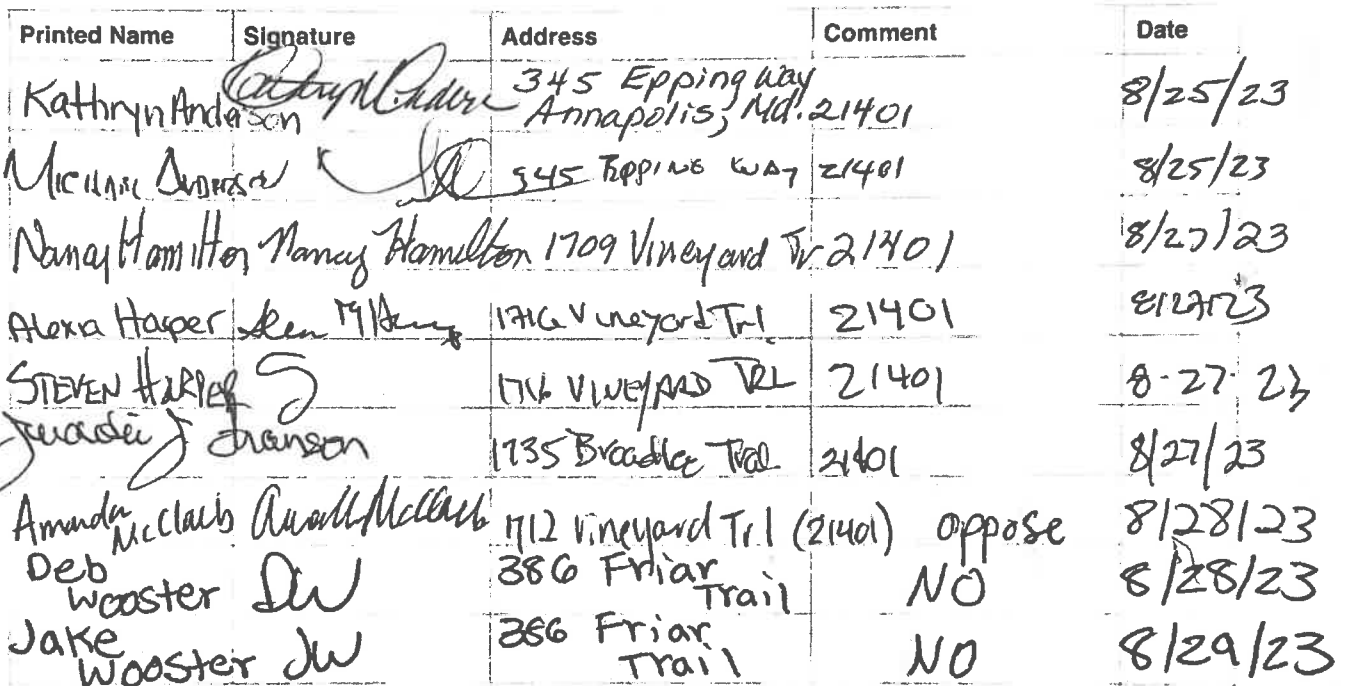 Printed Name Signature Address Comment Date
Kathryn Anderson 345 Epping Way
Annapolis, Md. 21401 8/25/23
Michael Anderson 345 Epping Way 21401 8/25/23
Nancy Hamilton Nancy Hamilton 1709 Vineyard Tr 21401 8/27/23
Alexa Harper 1716 Vineyard Trl 21401 8/27/23
STEVEN HARPER 1716 VINEYARD TRL 21401 8-27-23
J Franson 1735 Broadlee Trail 21401 8/27/23
Amanda McClarb 1712 Vineyard Trl (21401) oppose 8/28/23
Deb Wooster DW 386 Friar Trail NO 8/28/23
Jake Wooster JW 386 Friar Trail NO 8/29/23